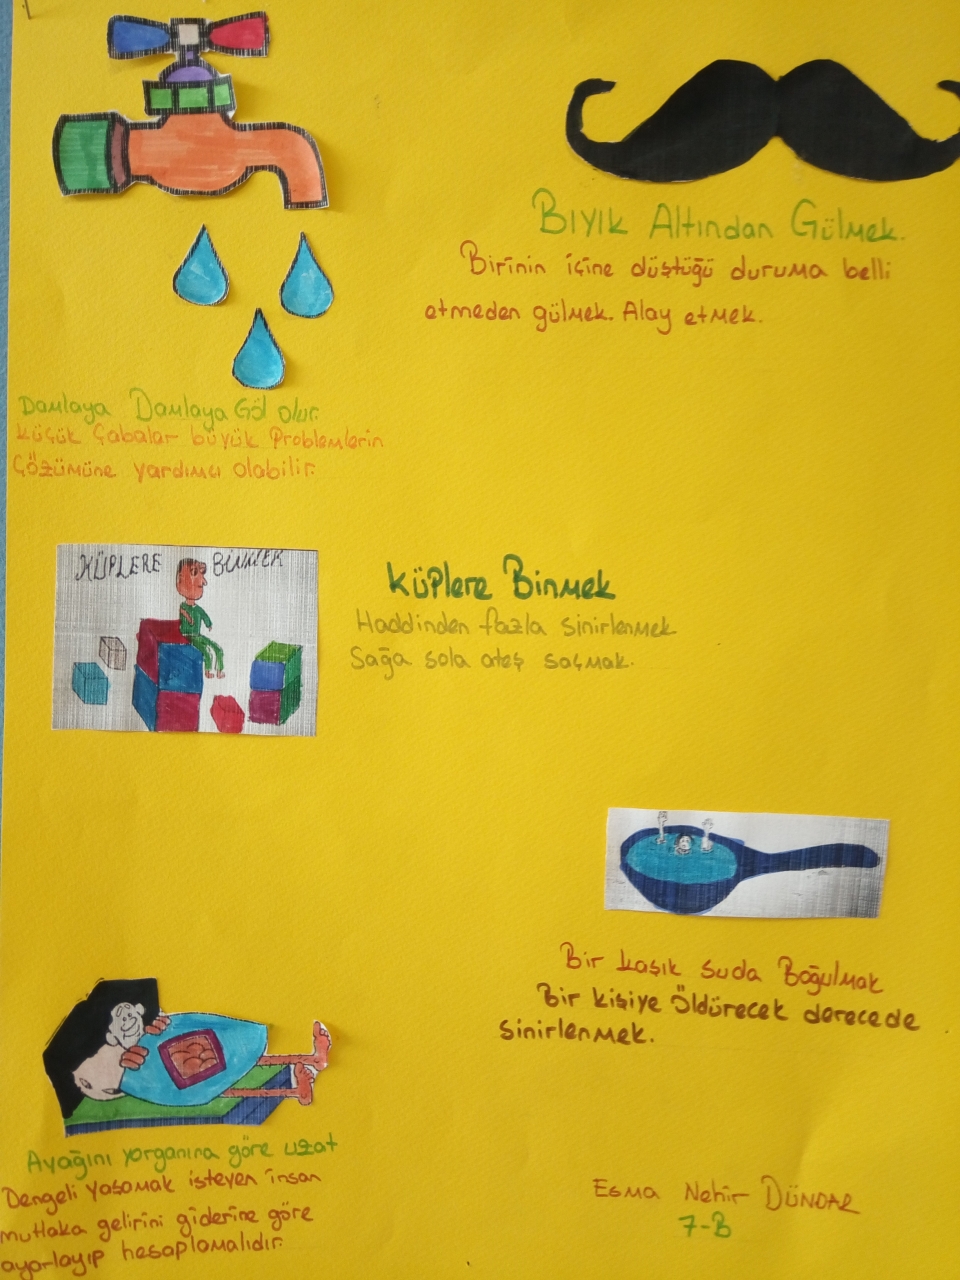 Bıyık Altından Gülmek.
Birinin içine düştüğü duruma belli
etmeden gülmek. Alay etmek.
Damlaya Damlaya Göl olur.
Küçük Çabalar büyük Problemlerin
Çözümüne yardımcı olabilir.
KÜPLERE BİNMEK
Küplere Binmek
Haddinden fazla sinirlenmek
Sağa sola ateş saçmak.
Bir kaşık suda Boğulmak
Bir kişiye Öldürecek derecede
sinirlenmek.
Ayağını yorganına göre uzat
Dengeli yaşamak isteyen insan
mutlaka gelirini giderine göre
ayarlayıp hesaplamalıdır.
Esma Nehir DÜNDAR
7-B